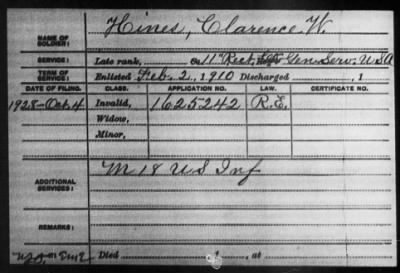 NAME OF SOLDIER: Hines, Clarence W.
SERVICE: Late rank, Co 11 Rect. Gen. Serv. USA
TERM OF SERVICE: Enlisted Feb. 2, 1910 Discharged , 1
DATE OF FILING. CLASS. APPLICATION NO. LAW. CERTIFICATE NO.
1928-Oct. 4 Invalid, 1625242 R.E.
Widow,
Minor,
ADDITIONAL SERVICES: M 18 U S Inf
REMARKS:
Died , 1 , at